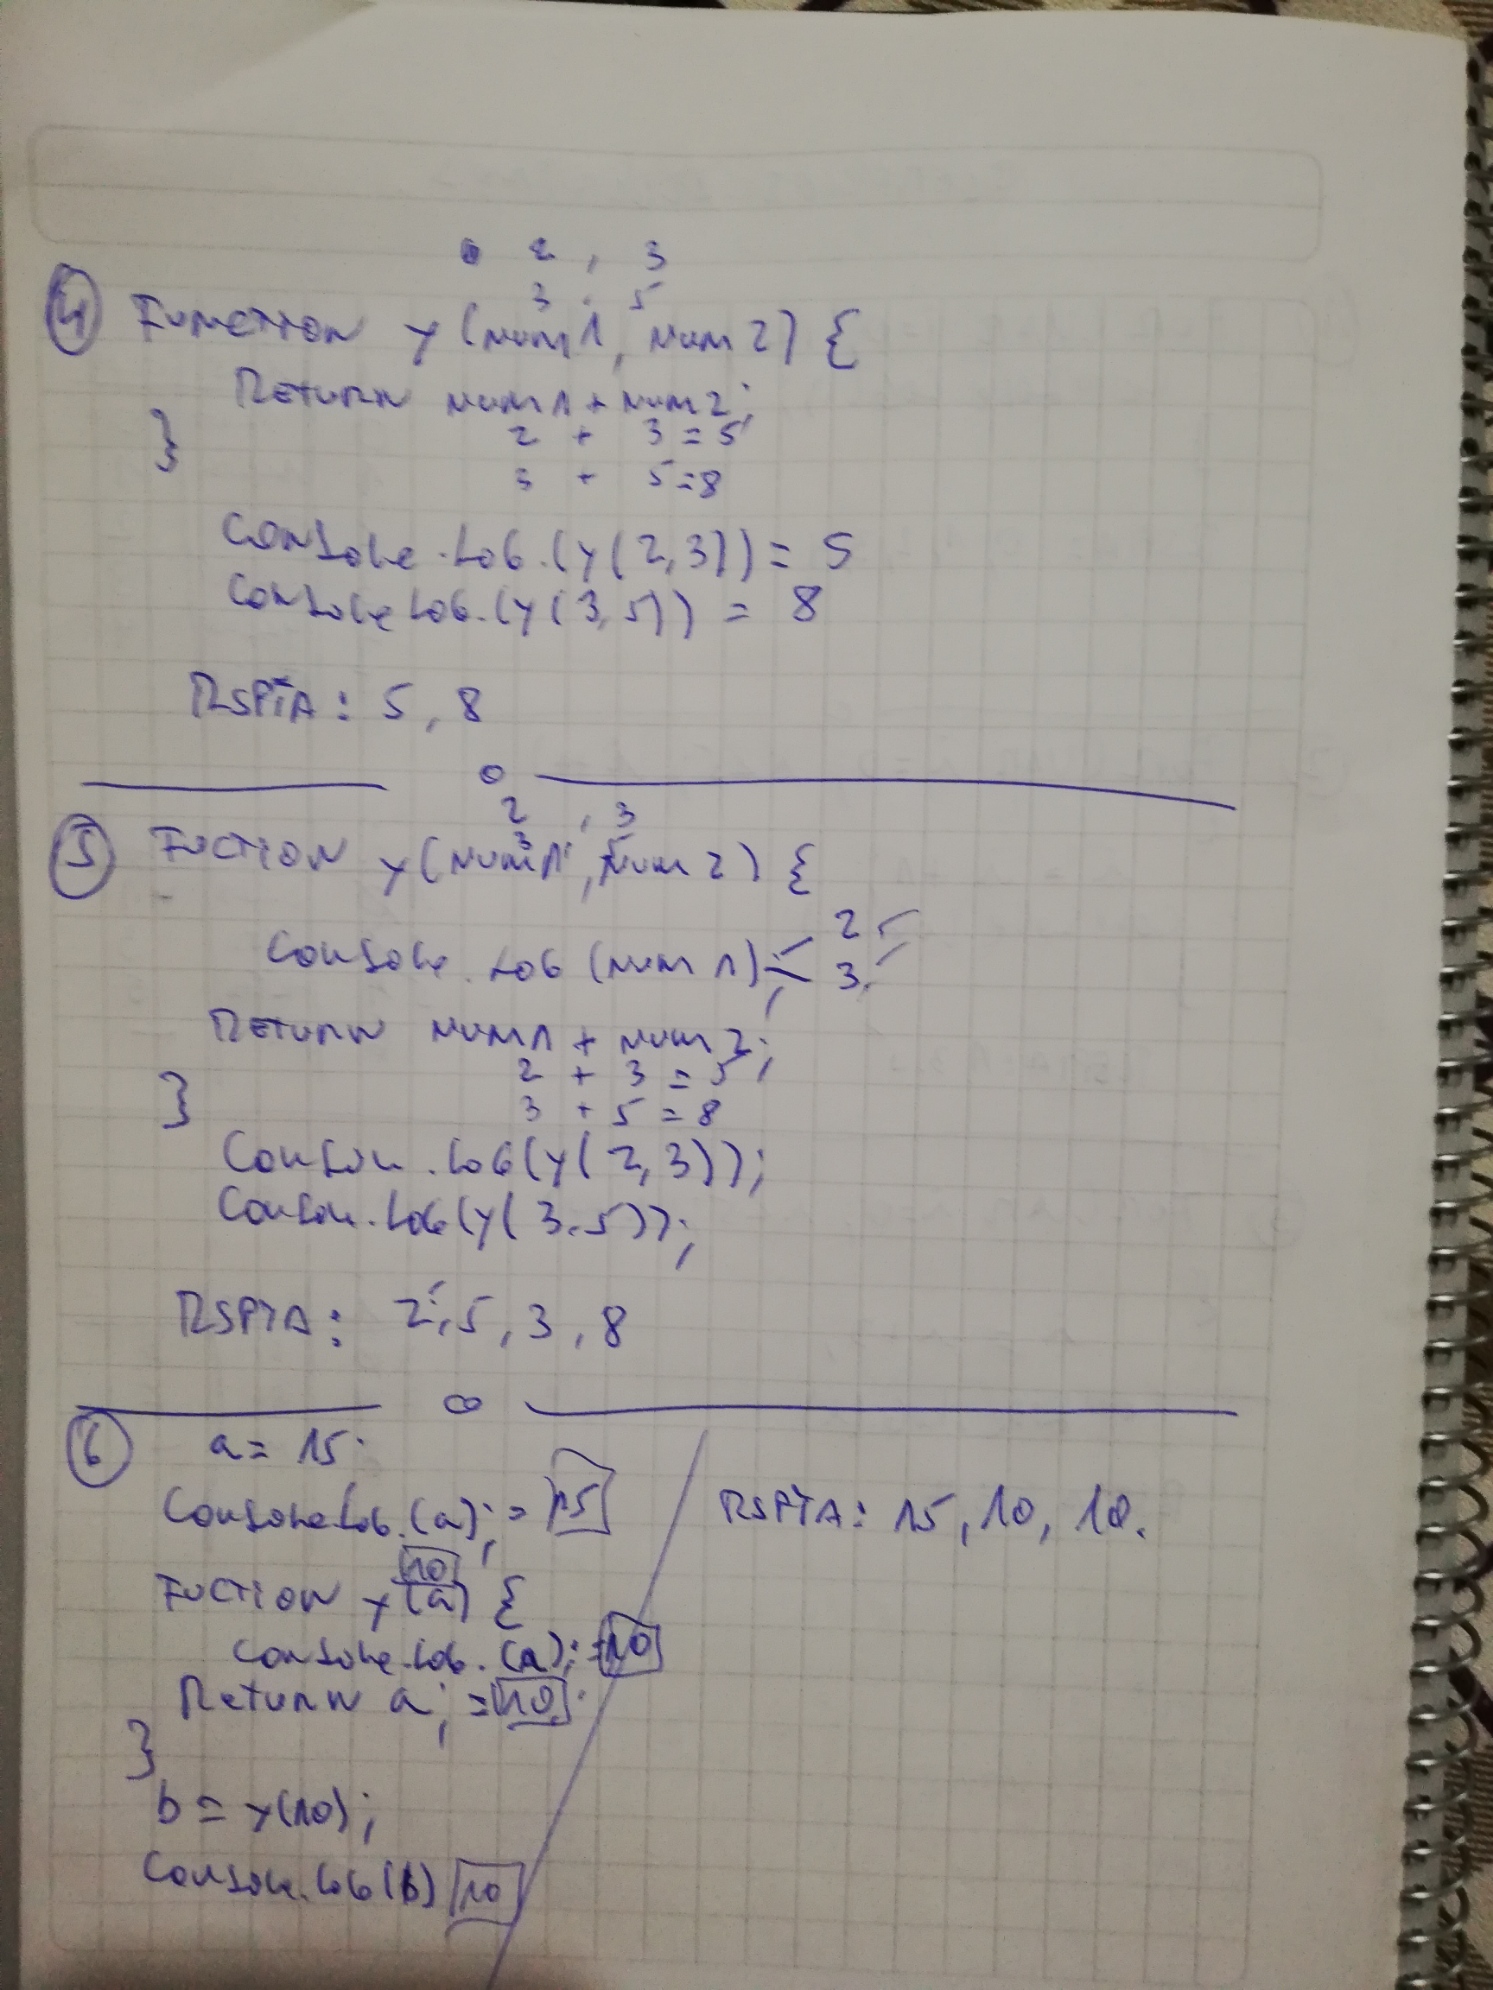 2 , 3
3 . 5
④ Function y (num1, num2) {
Return num1 + num2;
2 + 3 = 5
}
3 + 5 = 8
Console.Log.(y(2,3)) = 5
Console Log.(y(3,5)) = 8
RSPTA: 5, 8
2 , 3
3 5
⑤ Fuction y (num1, num2) {
2
Console.Log (num1);
3
Return num1 + num2;
2 + 3 = 5
}
3 + 5 = 8
Consol.Log(y(2,3));
Consol.Log(y(3.5));
RSPTA: 2, 5, 3, 8
⑥ a = 15
Console Log.(a); = 15
RSPTA: 15, 10, 10.
10
Fuction y (a) {
Console.Log.(a); = 10
Return a; = 10
}
b = y(10);
Console.Log(b) 10